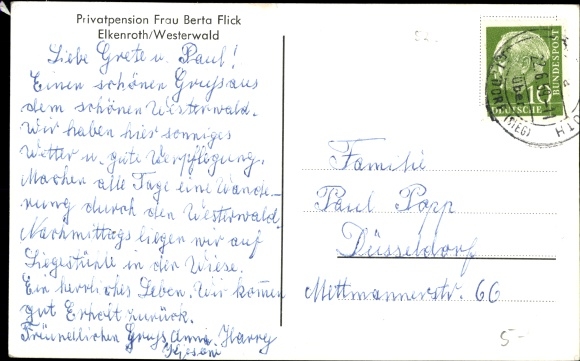 Privatpension Frau Berta Flick
Elkenroth/Westerwald
Liebe Grete u. Paul!
Einen schönen Gruß aus
dem schönen Westerwald.
Wir haben hier sonniges
Wetter u. gute Verpflegung.
Machen alle Tage eine Wande-
rung durch den Westerwald.
Nachmittags liegen wir auf
Liegestühle in der Wiese.
Ein herrliches Leben. Wir komen
gut Erholt zurück.
Freundlichen Gruß Anni, Harry
DEUTSCHE BUNDESPOST
10
(SIEG)
Familie
Paul Popp
Düsseldorf
Mittmannerstr. 66
5-